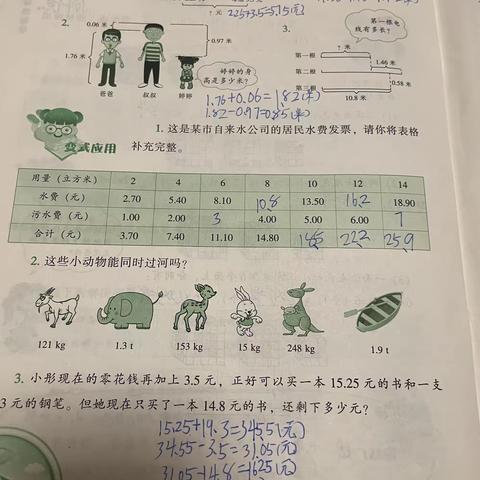 ? 元 2.25+3.5=5.75(元)
2.
0.06 米
0.97 米
1.76 米
爸爸 叔叔 婷婷
婷婷的身高是多少米?
1.76+0.06=1.82(米)
1.82-0.97=0.85(米)
3.
第一根电线有多长?
? 米
第一根
1.46 米
第二根
0.58 米
第三根
10.8 米
变式应用
1. 这是某市自来水公司的居民水费发票，请你将表格补充完整。
用量（立方米） 2 4 6 8 10 12 14
水费（元） 2.70 5.40 8.10 10.8 13.50 16.2 18.90
污水费（元） 1.00 2.00 3 4.00 5.00 6.00 7
合计（元） 3.70 7.40 11.10 14.80 18.5 22.2 25.9
2. 这些小动物能同时过河吗?
121 kg 1.3 t 153 kg 15 kg 248 kg 1.9 t
3. 小彤现在的零花钱再加上 3.5 元，正好可以买一本 15.25 元的书和一支
3 元的钢笔。但她现在只买了一本 14.8 元的书，还剩下多少元?
15.25+19.3=34.55(元)
34.55-3.5=31.05(元)
31.05-14.8=16.25(元)